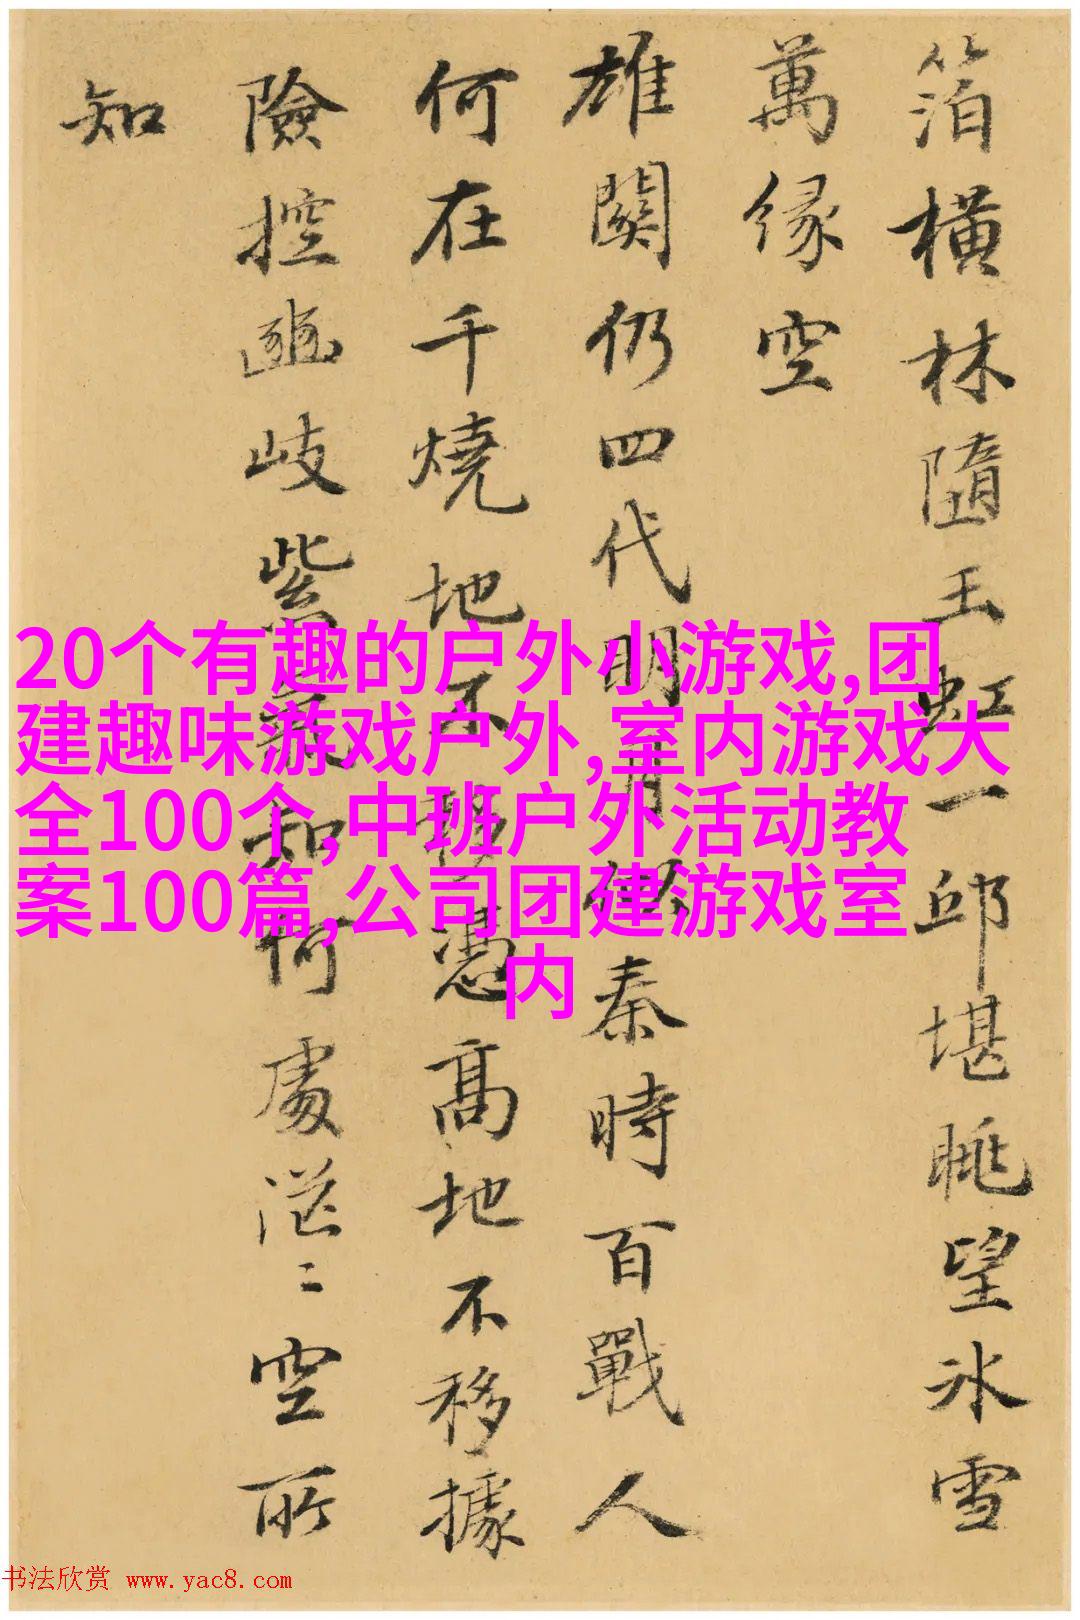 箔橫林隨玉虹一邱堪眺望冰雪
萬緣空
雄關仍四代明月
秦時百戰人
何在千燒地不移憑高地不移據
險控豳岐紫氣知何處茫〻空所
知
20个有趣的户外小游戏,团
建趣味游戏户外,室内游戏大
全100个,中班户外活动教
案100篇,公司团建游戏室
内
书法欣赏 www.yac8.com